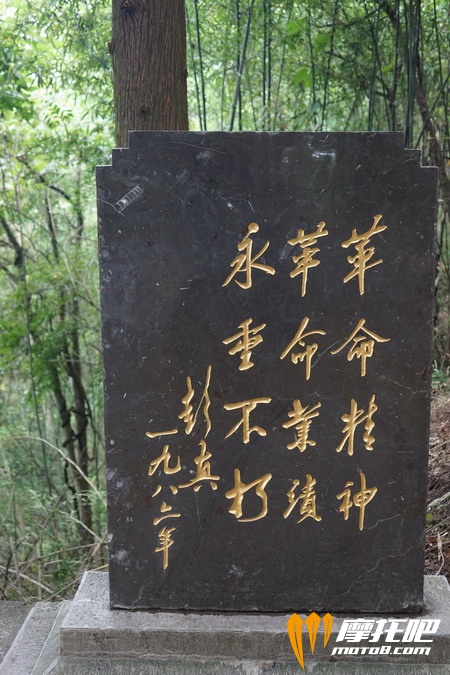 革命精神
革命業績
永垂不朽
彭真
一九八六年
摩托吧
moto8.com